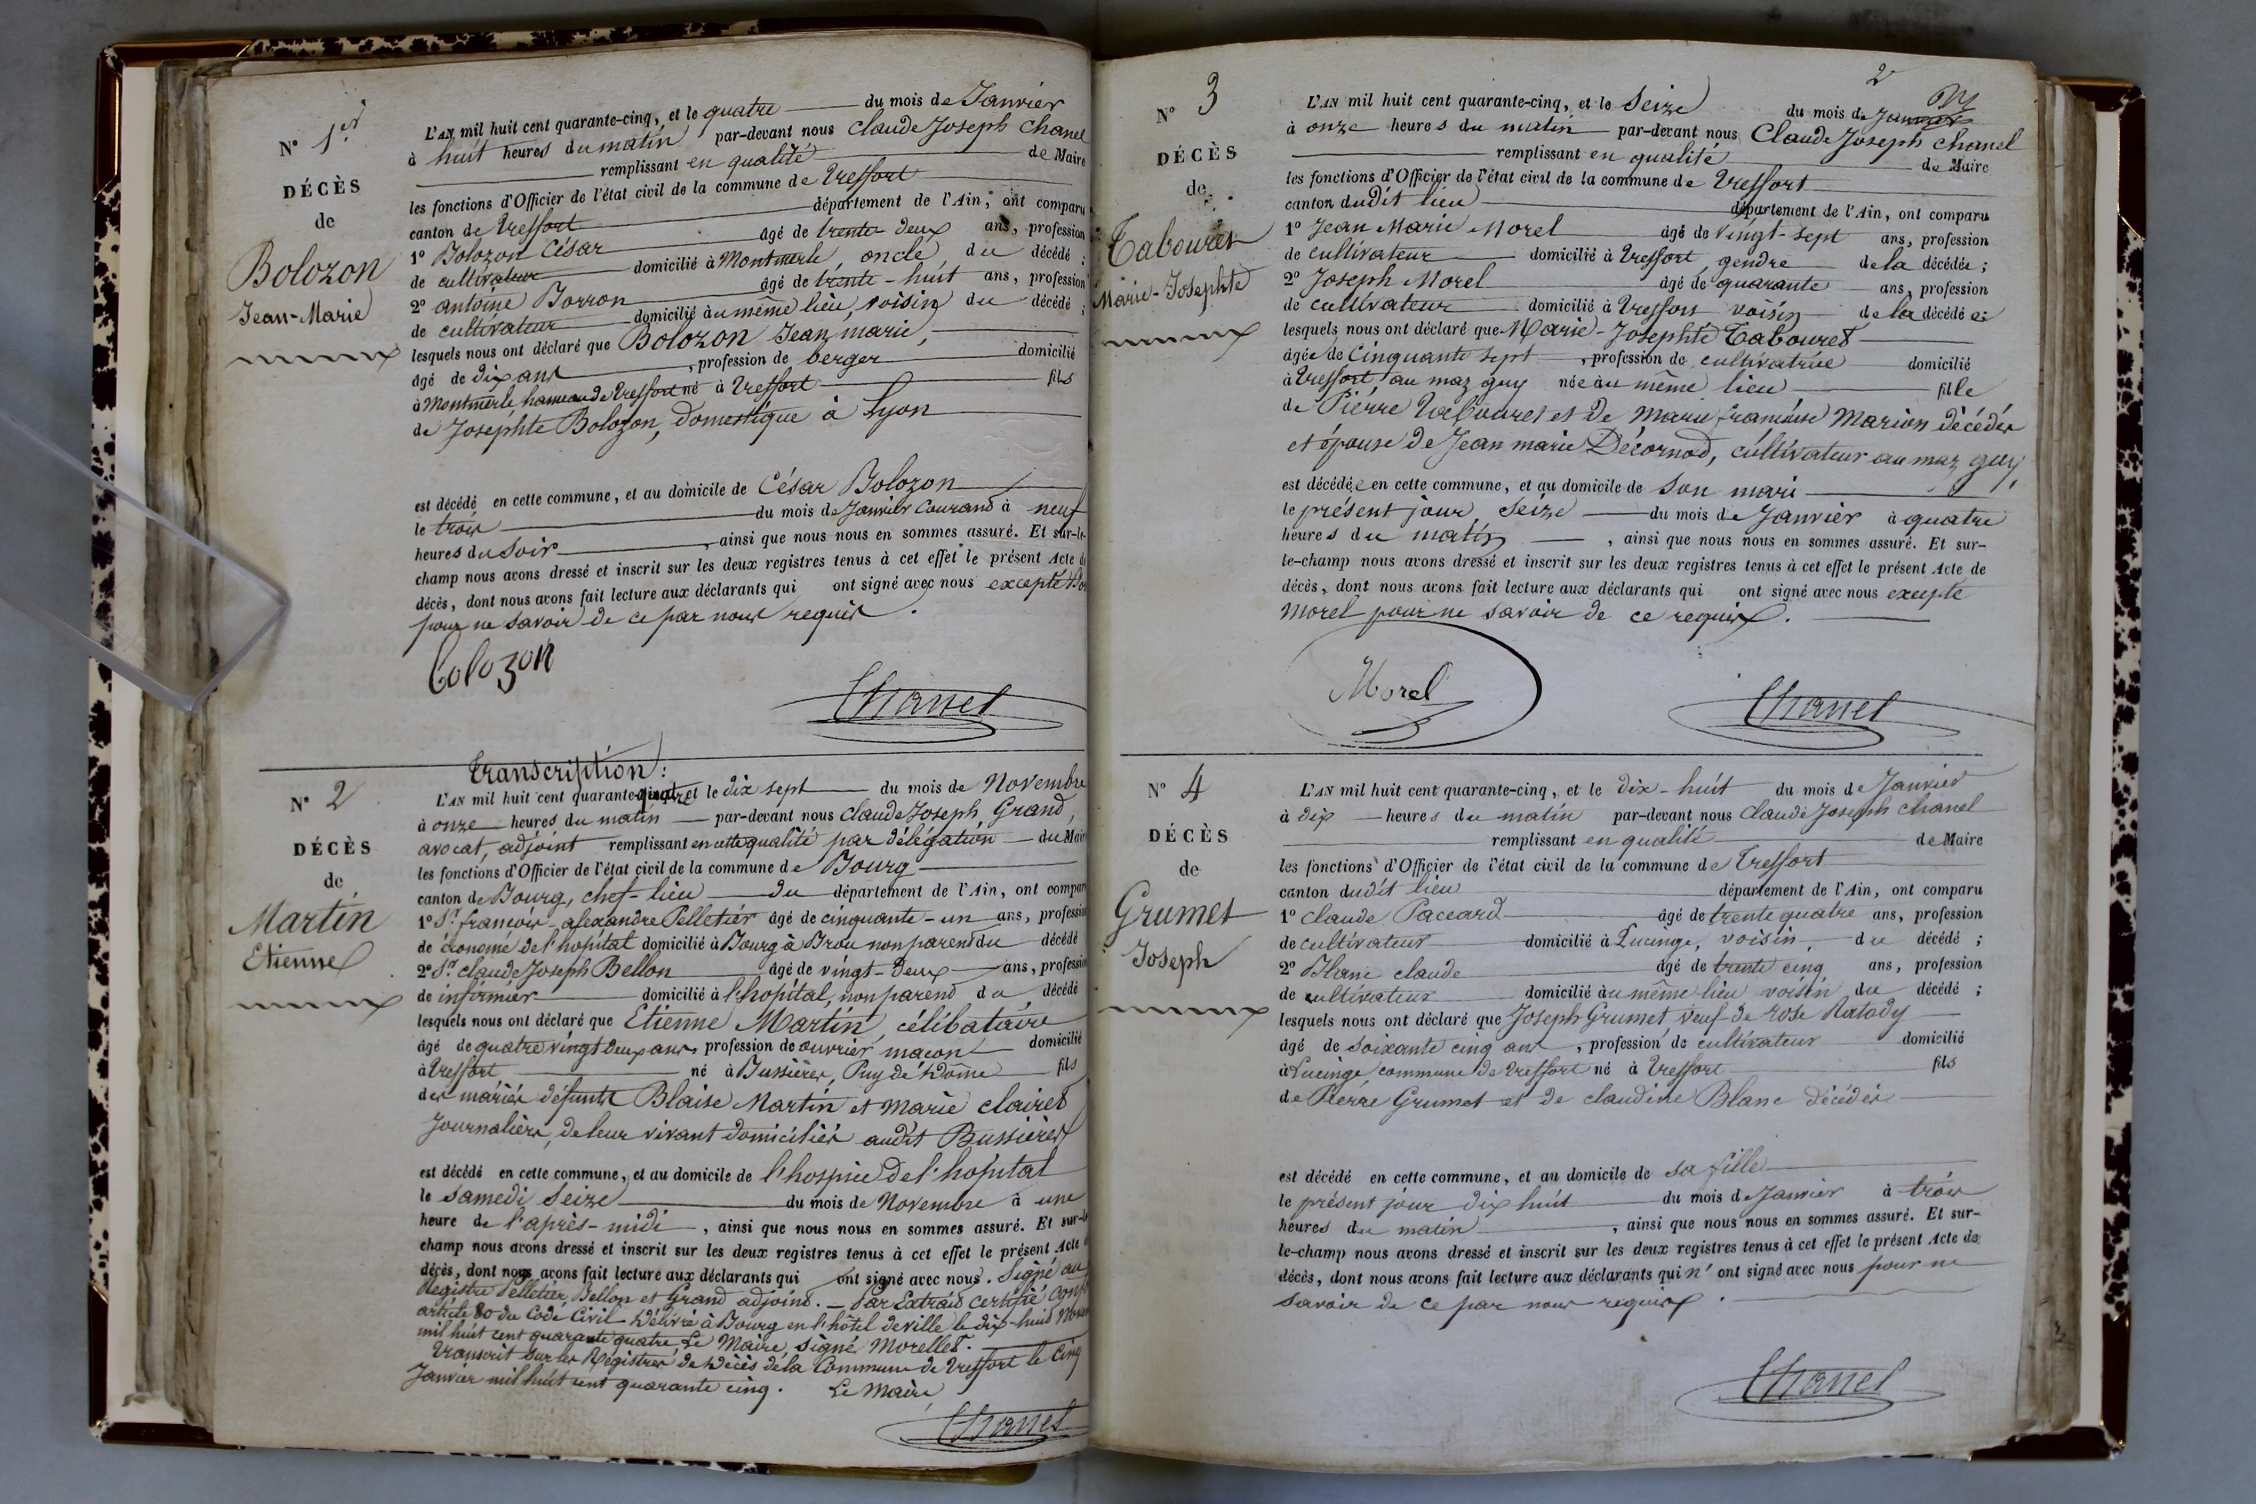 N° 1er
DÉCÈS
de
Bolozon
Jean-Marie
L'AN mil huit cent quarante-cinq, et le quatre du mois de Janvier
à huit heures du matin par-devant nous Claude Joseph Chanel
remplissant en qualité de Maire
les fonctions d'Officier de l'état civil de la commune de Treffort
canton de Treffort département de l'Ain, ont comparu
1° Bolozon César âgé de trente deux ans, profession
de cultivateur domicilié à Montmerle, oncle du décédé ;
2° antoine Borron âgé de trente-huit ans, profession
de cultivateur domicilié au même lieu, voisin du décédé ;
lesquels nous ont déclaré que Bolozon Jean marie,
âgé de dix ans, profession de berger domicilié
à Montmerle hameau de Treffort né à Treffort fils
de Josephte Bolozon, domestique à Lyon
est décédé en cette commune, et au domicile de César Bolozon
le trois du mois de Janvier Courand à neuf
heures du soir, ainsi que nous nous en sommes assuré. Et sur-le-
champ nous avons dressé et inscrit sur les deux registres tenus à cet effet le présent Acte de
décès, dont nous avons fait lecture aux déclarants qui ont signé avec nous excepté
pour ne savoir de ce par nous requis.
bolozon
Chanel
N° 2
DÉCÈS
de
Martin
Etienne
Transcription :
L'AN mil huit cent quarante-quatre et le dix sept du mois de Novembre
à onze heures du matin par-devant nous Claude Joseph Grand,
avocat, adjoint remplissant en cette qualité par délégation du Maire
les fonctions d'Officier de l'état civil de la commune de Bourg
canton de Bourg, chef-lieu du département de l'Ain, ont comparu
1° Sr. françois alexandre Pelletier âgé de cinquante-un ans, profession
de économe de l'hopital domicilié à Bourg à Brou non parend du décédé
2° Sr. claude Joseph Bellon âgé de vingt-deux ans, profession
de infirmier domicilié à l'hopital, non parend du décédé
lesquels nous ont déclaré que Etienne Martin, célibataire
âgé de quatre vingt deux ans, profession de ouvrier maçon domicilié
à Treffort né à Bussières, Puy de Dôme fils
des mariés défunts Blaise Martin et Marie clairet
Journaliers, de leur vivant domiciliés audit Bussières
est décédé en cette commune, et au domicile de l'hospice de l'hopital
le samedi seize du mois de Novembre à une
heure de l'après-midi, ainsi que nous nous en sommes assuré. Et sur-le-
champ nous avons dressé et inscrit sur les deux registres tenus à cet effet le présent Acte de
décès, dont nous avons fait lecture aux déclarants qui ont signé avec nous. Signé au
Registre Pelletier, Bellon et Grand adjoint. — Par Extrait certifié
article 80 du Code Civil Délivré à Bourg en l'hôtel de ville le dix-huit
mil huit cent quarante quatre, Le Maire, signé Morellet.
Transcrit sur les Régistres de Décès de la Commune de Treffort le Cinq
Janvier mil huit cent quarante cinq. Le Maire,
Chanel
2
N° 3
DÉCÈS
de
Tabouret
Marie-Josephte
L'AN mil huit cent quarante-cinq, et le seize du mois de Janvier
à onze heures du matin par-devant nous Claude Joseph Chanel
remplissant en qualité de Maire
les fonctions d'Officier de l'état civil de la commune de Treffort
canton dudit lieu département de l'Ain, ont comparu
1° Jean Marie Morel âgé de vingt-sept ans, profession
de cultivateur domicilié à Treffort gendre de la décédée ;
2° Joseph Morel âgé de quarante ans, profession
de cultivateur domicilié à Treffort voisin de la décédée ;
lesquels nous ont déclaré que Marie-Josephte Tabouret
âgée de Cinquante sept, profession de cultivatrice domicilié
à Treffort, au maz guy née au même lieu fille
de Pierre Tabouret et de Marie françoise Marion décédés
et épouse de Jean marie Décornod, cultivateur au maz guy,
est décédée en cette commune, et au domicile de son mari
le présent jour seize du mois de Janvier à quatre
heures du matin, ainsi que nous nous en sommes assuré. Et sur-
le-champ nous avons dressé et inscrit sur les deux registres tenus à cet effet le présent Acte de
décès, dont nous avons fait lecture aux déclarants qui ont signé avec nous excepte
Morel pour ne savoir de ce requis.
Morel
Chanel
N° 4
DÉCÈS
de
Grumet
Joseph
L'AN mil huit cent quarante-cinq, et le dix-huit du mois de Janvier
à dix heures du matin par-devant nous Claude Joseph Chanel
remplissant en qualité de Maire
les fonctions d'Officier de l'état civil de la commune de Treffort
canton dudit lieu département de l'Ain, ont comparu
1° Claude Paccard âgé de trente quatre ans, profession
de cultivateur domicilié à Lucinge, voisin, du décédé ;
2° Blanc claude âgé de trente cinq ans, profession
de cultivateur domicilié au même lieu voisin du décédé ;
lesquels nous ont déclaré que Joseph Grumet veuf de rose Ratady
âgé de soixante cinq ans, profession de cultivateur domicilié
à Lucinge commune de Treffort né à Treffort fils
de Pierre Grumet et de claudine Blanc décédés
est décédé en cette commune, et au domicile de sa fille
le présent jour dix huit du mois de Janvier à trois
heures du matin, ainsi que nous nous en sommes assuré. Et sur-
le-champ nous avons dressé et inscrit sur les deux registres tenus à cet effet le présent Acte de
décès, dont nous avons fait lecture aux déclarants qui n'ont signé avec nous pour ne
savoir de ce par nous requis.
Chanel